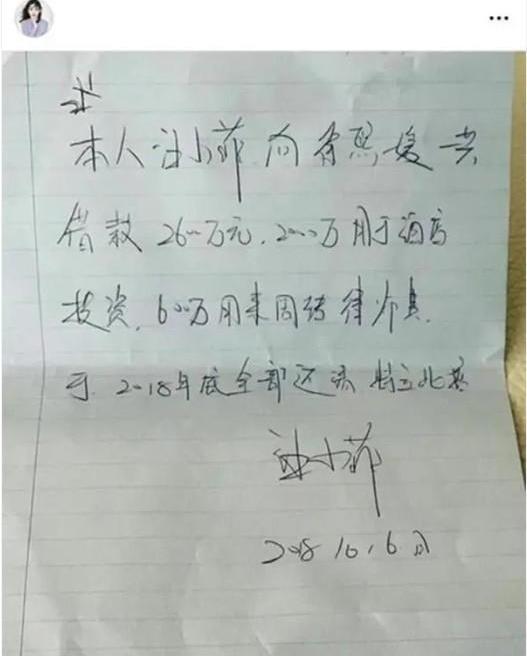 本人汪小菲向徐熙媛共
借款2600万元.2000万用于酒店
投资.600万用来周转律师费.
于2018年底全部还清 特立此据
汪小菲
2018.10.6日